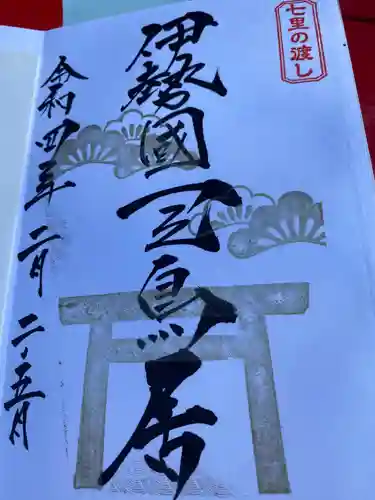 七里の渡し
伊勢國一之鳥居
令和四年二月二五月